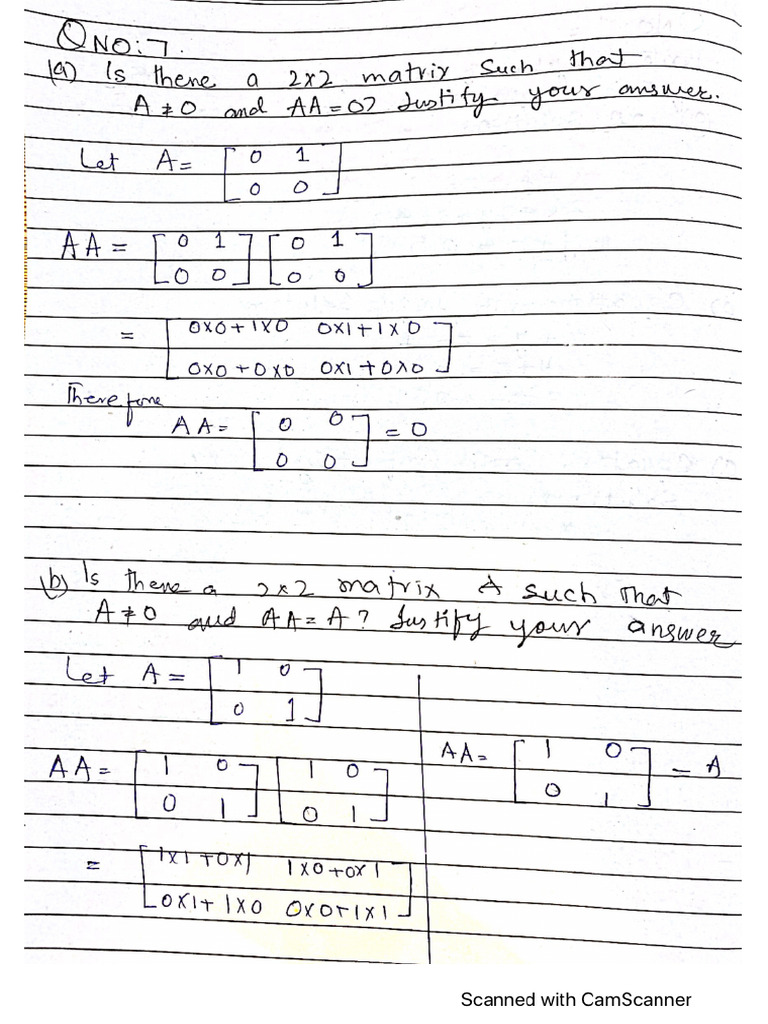 Q NO:7.
(a) Is there a 2x2 matrix such that
A ≠ 0 and AA = 0? Justify your answer.
Let A = [ 0 1
0 0 ]
AA = [ 0 1 ] [ 0 1 ]
[ 0 0 ] [ 0 0 ]
= [ 0x0+1x0 0x1+1x0 ]
[ 0x0+0x0 0x1+0x0 ]
Therefore
AA = [ 0 0 ] = 0
[ 0 0 ]
(b) Is there a 2x2 matrix A such that
A ≠ 0 and AA = A? Justify your answer
Let A = [ 1 0 ]
[ 0 1 ]
AA = [ 1 0 ] [ 1 0 ]
[ 0 1 ] [ 0 1 ]
= [ 1x1+0x1 1x0+0x1 ]
[ 0x1+1x0 0x0+1x1 ]
AA = [ 1 0 ] = A
[ 0 1 ]
Scanned with CamScanner